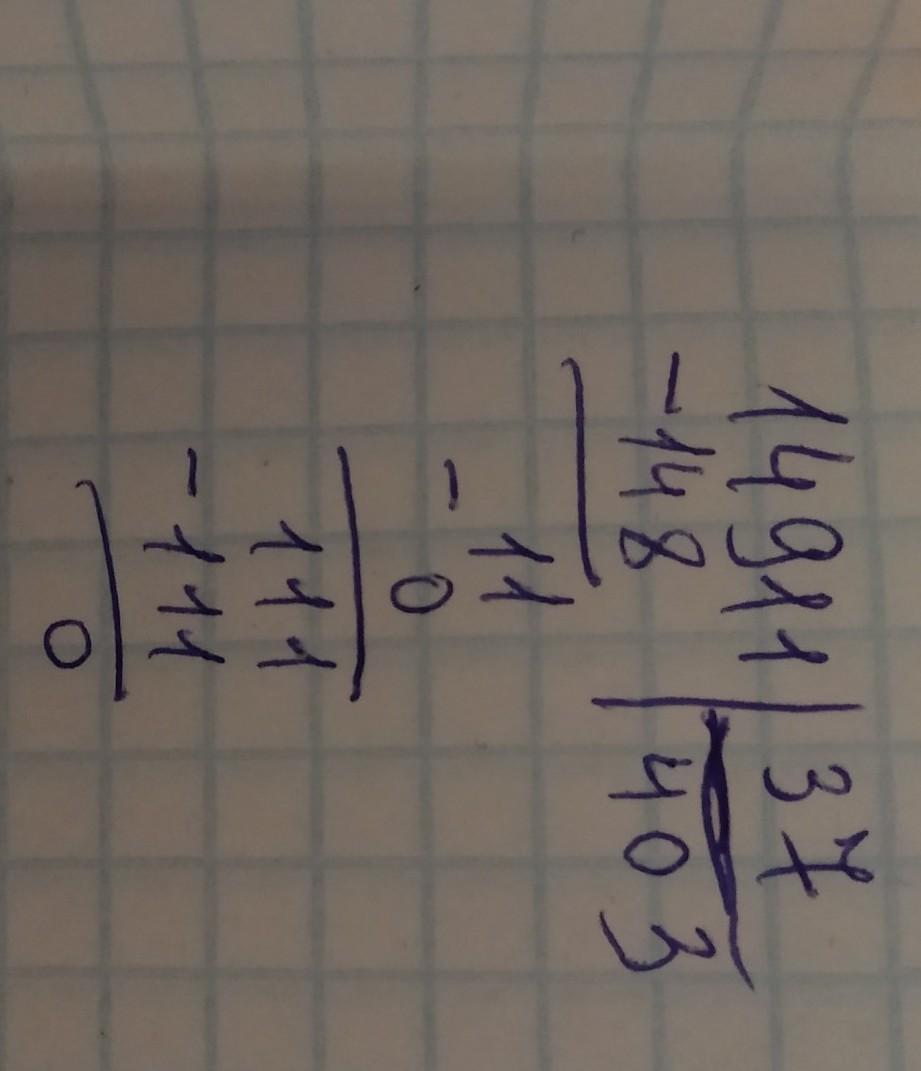 14911 | 37
-148 | 403
11
- 0
111
-111
0